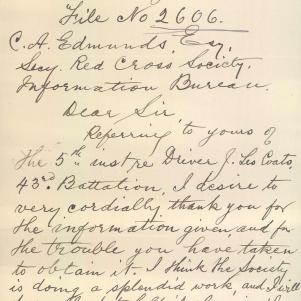 File No 2606.
C. A. Edmunds, Esq,
Secy. Red Cross Society.
Information Bureau.
Dear Sir,
Referring to yours of
the 5th inst re Driver J. Les Coats,
43rd Battalion, I desire to
very cordially thank you for
the information given, and for
the trouble you have taken
to obtain it. I think the Society
is doing a splendid work, and I will